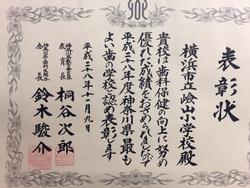 表彰状
横浜市立嶮山小学校殿
貴校は歯科保健の向上に努め
優れた成績をおさめられましたので
平成二十八年度神奈川県最も
よい歯の学校と認め表彰します
平成二十八年十一月九日
神奈川県教育委員会
教育長 桐谷次郎
会長 鈴木駿介